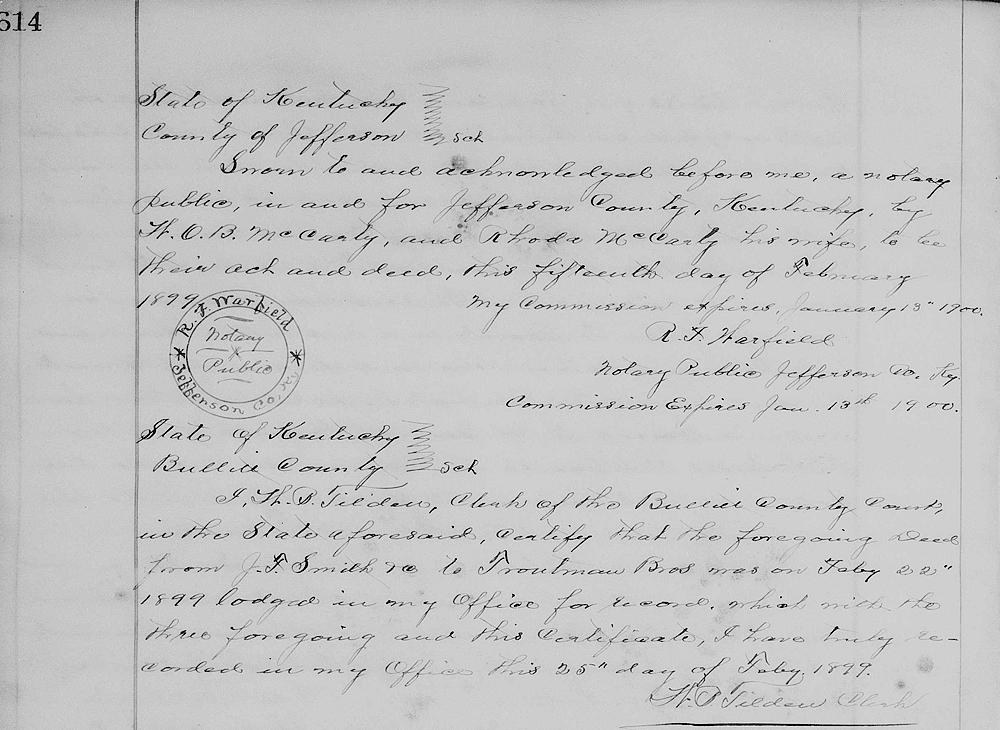 614
State of Kentucky
County of Jefferson } Sct
Sworn to and acknowledged before me, a notary
public, in and for Jefferson County, Kentucky, by
McCarty, and Rhoda McCarty his wife, to be
their act and deed, this fifteenth day of February
1899. My Commission expires, January 13" 1900.
R. F. Warfield
Notary Public
Jefferson Co. Ky.
R. F. Warfield
Notary Public Jefferson Co. Ky.
Commission Expires Jan. 13th 1900.
State of Kentucky
Bullitt County } Sct
I, Tilden, Clerk of the Bullitt County Court,
in the State aforesaid, certify that the foregoing Deed
from J. F. Smith &c to Troutman Bros was on Feby 22"
1899 lodged in my Office for record. which with the
three foregoing and this Certificate, I have truly re-
corded in my Office this 25" day of Feby. 1899.
Tilden Clerk